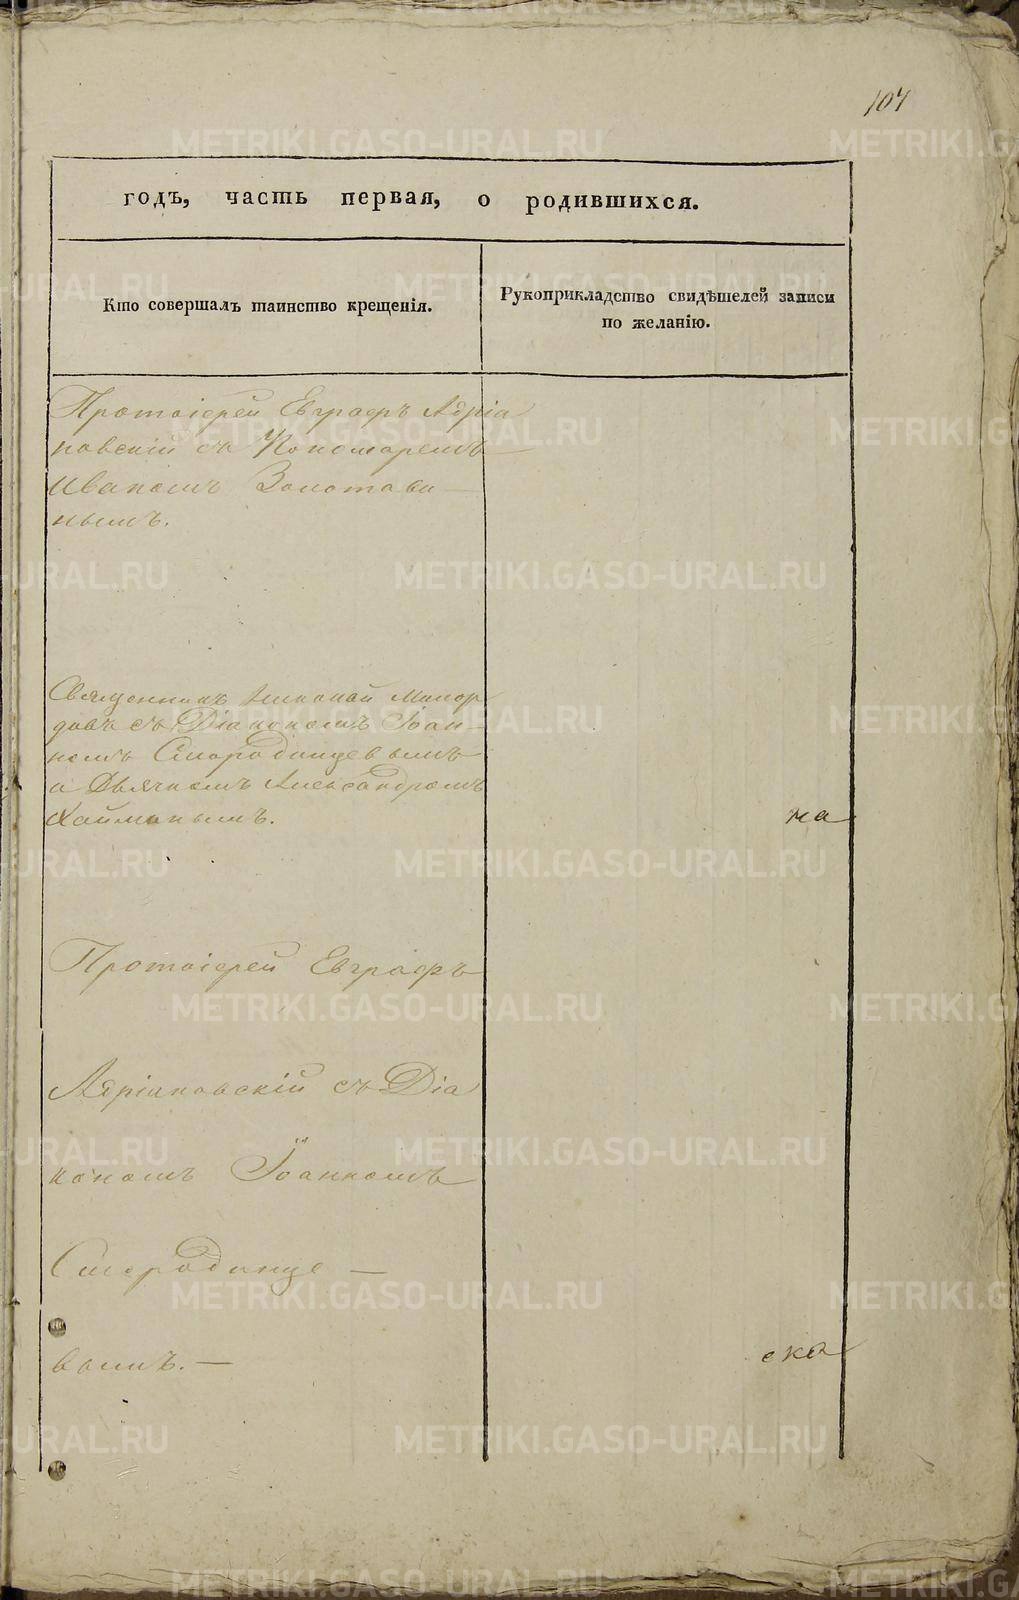 107
годъ, часть первая, о родившихся.
Кто совершалъ таинство крещенія.
Рукоприкладство свидѣтелей записи
по желанію.
Протоіерей Евграфъ Адріа
новскій съ Пономаремъ
Иваномъ Золотави-
нымъ.
Священникъ Николай
съ Діакономъ Іоан-
номъ Смородинцевымъ
а Дьячкомъ Александромъ
Хаймнымъ.
на
Протоіерей Евграфъ
Адріановскій съ Діа
кономъ Іоанномъ
Смородинце —
вымъ. —
ска
METRIKI.GASO-URAL.RU